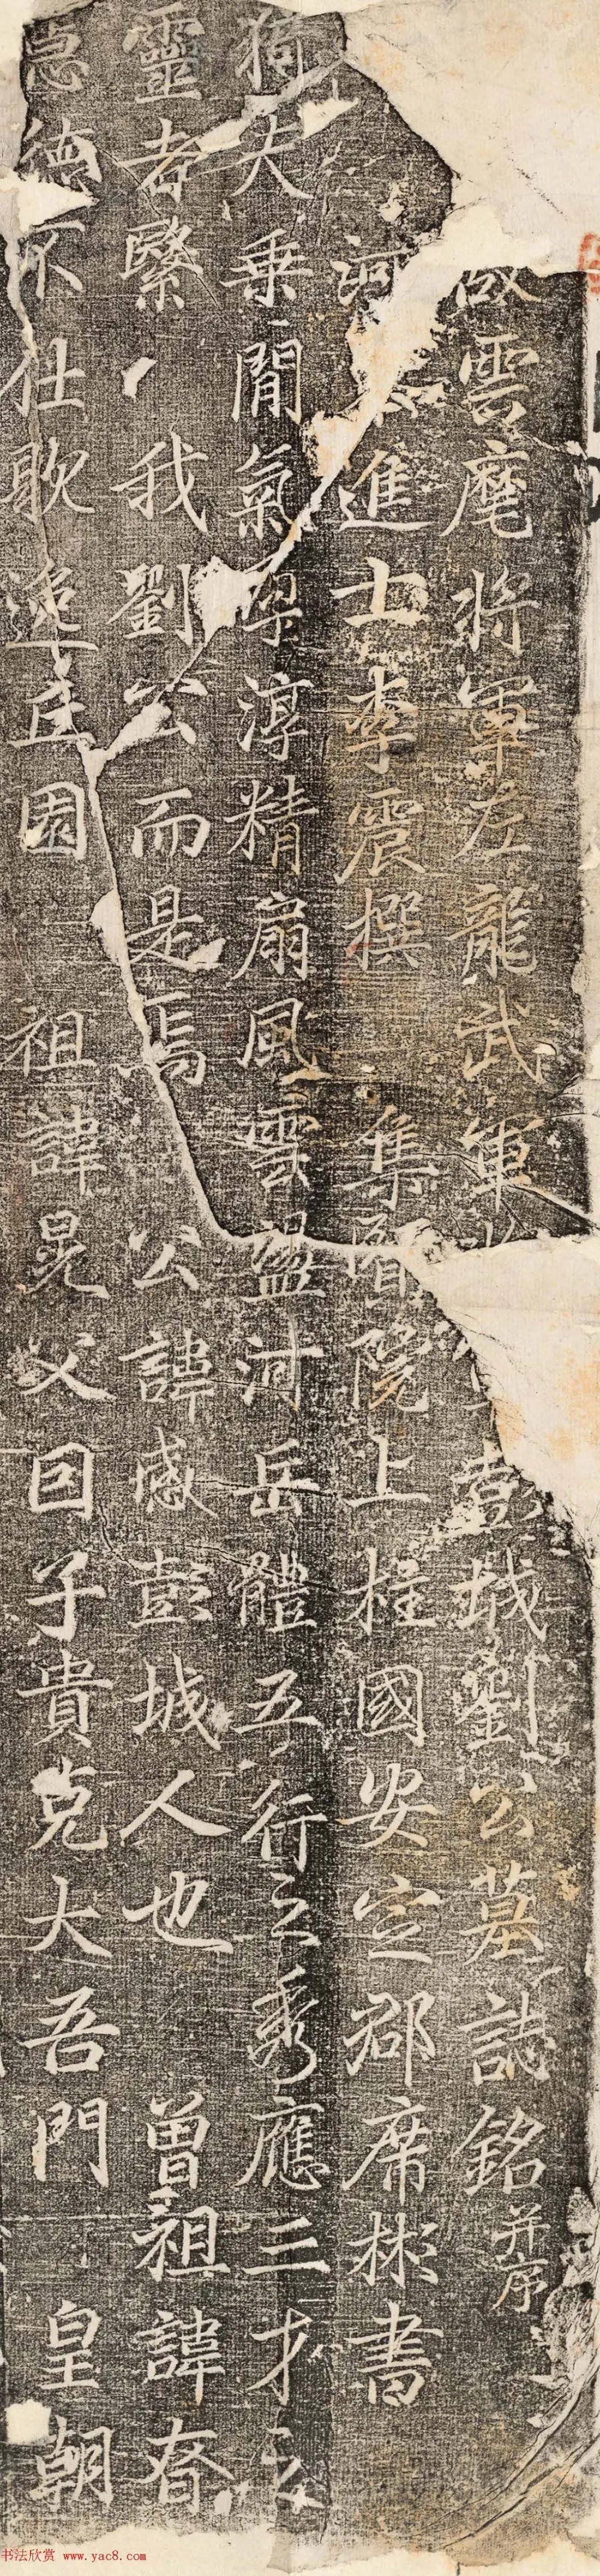 故雲麾將軍左龍武軍彭城劉公墓誌銘并序
河進士李震撰 集賢院上柱國安定郡席彬書
猗夫乗間氣孕淳精扇風雲盪河岳體五行之秀應三才之
靈者緊我劉公而是焉 公諱感彭城人也 曾祖諱眘
德不仕歌逆丘園 祖諱晃父曰子貴克大吾門 皇朝
书法欣赏 www.yac8.com